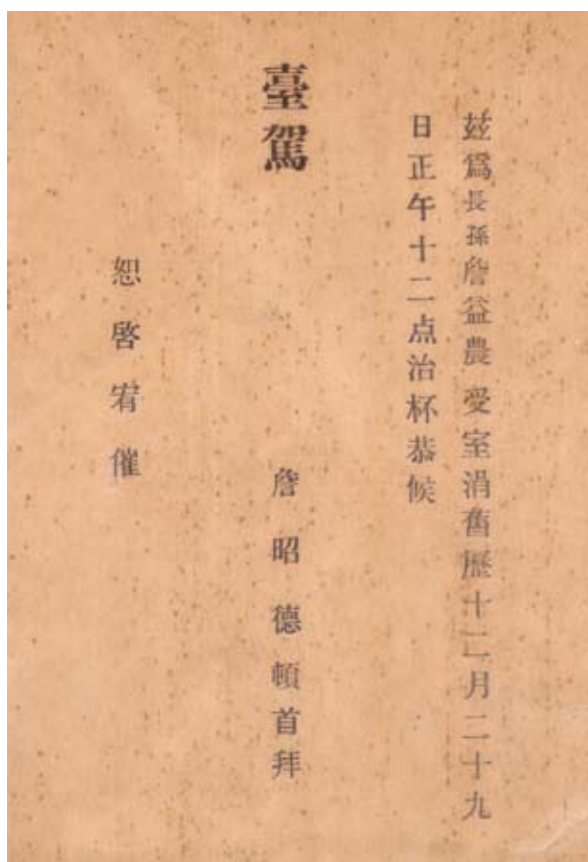 茲爲長孫詹益農受室涓舊歷十二月二十九
日正午十二点治杯恭候
臺駕
詹昭德頓首拜
恕啓宥催